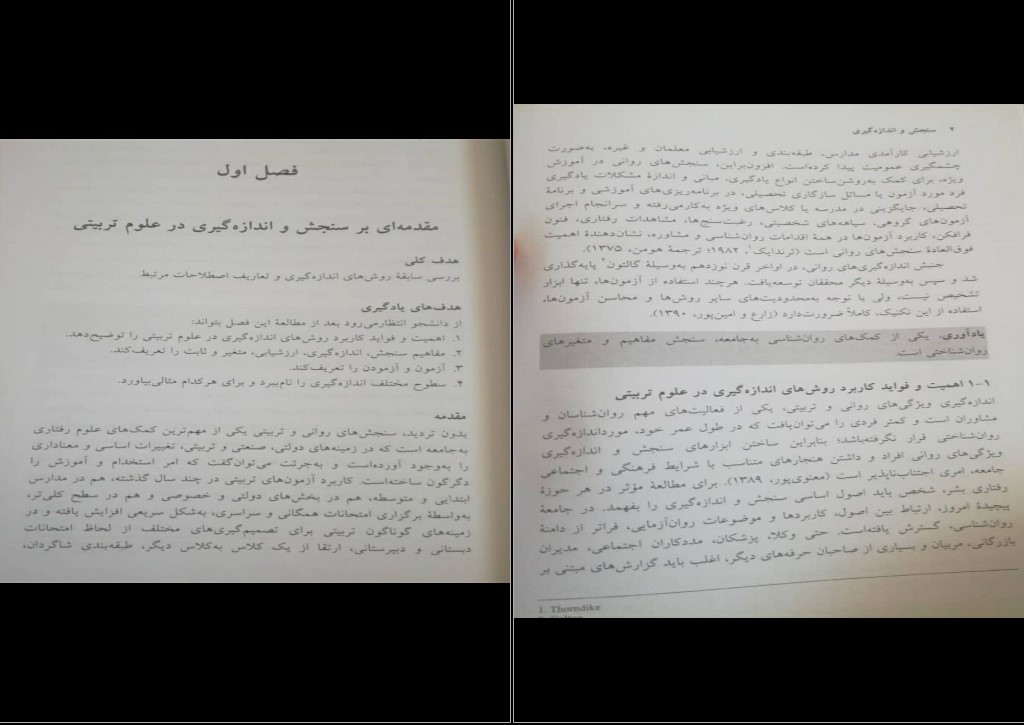 فصل اول
مقدمه‌ای بر سنجش و اندازه‌گیری در علوم تربیتی
هدف کلی
بررسی سابقهٔ روش‌های اندازه‌گیری و تعاریف اصطلاحات مرتبط
هدف‌های یادگیری
از دانشجو انتظارمی‌رود بعد از مطالعهٔ این فصل بتواند:
۱. اهمیت و فواید کاربرد روش‌های اندازه‌گیری در علوم تربیتی را توضیح‌دهد.
۲. مفاهیم سنجش، اندازه‌گیری، ارزشیابی، متغیر و ثابت را تعریف‌کند.
۳. آزمون و آزمودن را تعریف‌کند.
۴. سطوح مختلف اندازه‌گیری را نام‌ببرد و برای هرکدام مثالی‌بیاورد.
مقدمه
بدون تردید، سنجش‌های روانی و تربیتی یکی از مهم‌ترین کمک‌های علوم رفتاری
به‌جامعه است که در زمینه‌های دولتی، صنعتی و تربیتی، تغییرات اساسی و معناداری
را به‌وجود آورده‌است و به‌جرئت می‌توان‌گفت که امر استخدام و آموزش را
دگرگون ساخته‌است. کاربرد آزمون‌های تربیتی در چند سال گذشته، هم در مدارس
ابتدایی و متوسطه، هم در بخش‌های دولتی و خصوصی و هم در سطح کلی‌تر،
به‌واسطهٔ برگزاری امتحانات همگانی و سراسری، به‌شکل سریعی افزایش یافته و در
زمینه‌های گوناگون تربیتی برای تصمیم‌گیری‌های مختلف از لحاظ امتحانات
دبستانی و دبیرستانی، ارتقا از یک کلاس به‌کلاس دیگر، طبقه‌بندی شاگردان،
۲ سنجش و اندازه‌گیری
ارزشیابی کارآمدی مدارس، طبقه‌بندی و ارزشیابی معلمان و غیره، به‌صورت
چشمگیری عمومیت پیدا کرده‌است. افزون‌براین، سنجش‌های روانی در آموزش
ویژه، برای کمک به‌روشن‌ساختن انواع یادگیری، مبانی و اندازهٔ مشکلات یادگیری
فرد مورد آزمون یا مسائل سازگاری تحصیلی، در برنامه‌ریزی‌های آموزشی و برنامهٔ
تحصیلی، جایگزینی در مدرسه یا کلاس‌های ویژه به‌کارمی‌رفته و سرانجام اجرای
آزمون‌های گروهی، سیاهه‌های شخصیتی، رغبت‌سنج‌ها، مشاهدات رفتاری، فنون
فرافکن، کاربرد آزمون‌ها در همهٔ اقدامات روان‌شناسی و مشاوره، نشان‌دهندهٔ اهمیت
فوق‌العادهٔ سنجش‌های روانی است (ثرندایک۱، ۱۹۸۲؛ ترجمهٔ هومن، ۱۳۷۵).
جنبش اندازه‌گیری‌های روانی، در اواخر قرن نوزدهم به‌وسیلهٔ گالتون۲ پایه‌گذاری
شد و سپس به‌وسیلهٔ دیگر محققان توسعه‌یافت. هرچند استفاده از آزمون‌ها، تنها ابزار
تشخیص نیست، ولی با توجه به‌محدودیت‌های سایر روش‌ها و محاسن آزمون‌ها،
استفاده از این تکنیک، کاملاً ضرورت‌دارد (زارع و امین‌پور، ۱۳۹۰).
یادآوری. یکی از کمک‌های روان‌شناسی به‌جامعه، سنجش مفاهیم و متغیرهای
روان‌شناختی است.
۱-۱ اهمیت و فواید کاربرد روش‌های اندازه‌گیری در علوم تربیتی
اندازه‌گیری ویژگی‌های روانی و تربیتی، یکی از فعالیت‌های مهم روان‌شناسان و
مشاوران است و کمتر فردی را می‌توان‌یافت که در طول عمر خود، مورداندازه‌گیری
روان‌شناختی قرار نگرفته‌باشد؛ بنابراین ساختن ابزارهای سنجش و اندازه‌گیری
ویژگی‌های روانی افراد و داشتن هنجارهای متناسب با شرایط فرهنگی و اجتماعی
جامعه، امری اجتناب‌ناپذیر است (معنوی‌پور، ۱۳۸۹). برای مطالعهٔ مؤثر در هر حوزهٔ
رفتاری بشر، شخص باید اصول اساسی سنجش و اندازه‌گیری را بفهمد. در جامعهٔ
پیچیدهٔ امروز، ارتباط بین اصول، کاربردها و موضوعات روان‌آزمایی، فراتر از دامنهٔ
روان‌شناسی، گسترش یافته‌است. حتی وکلا، پزشکان، مددکاران اجتماعی، مدیران
بازرگانی، مربیان و بسیاری از صاحبان حرفه‌های دیگر، اغلب باید گزارش‌های مبتنی بر
1. Thorndike